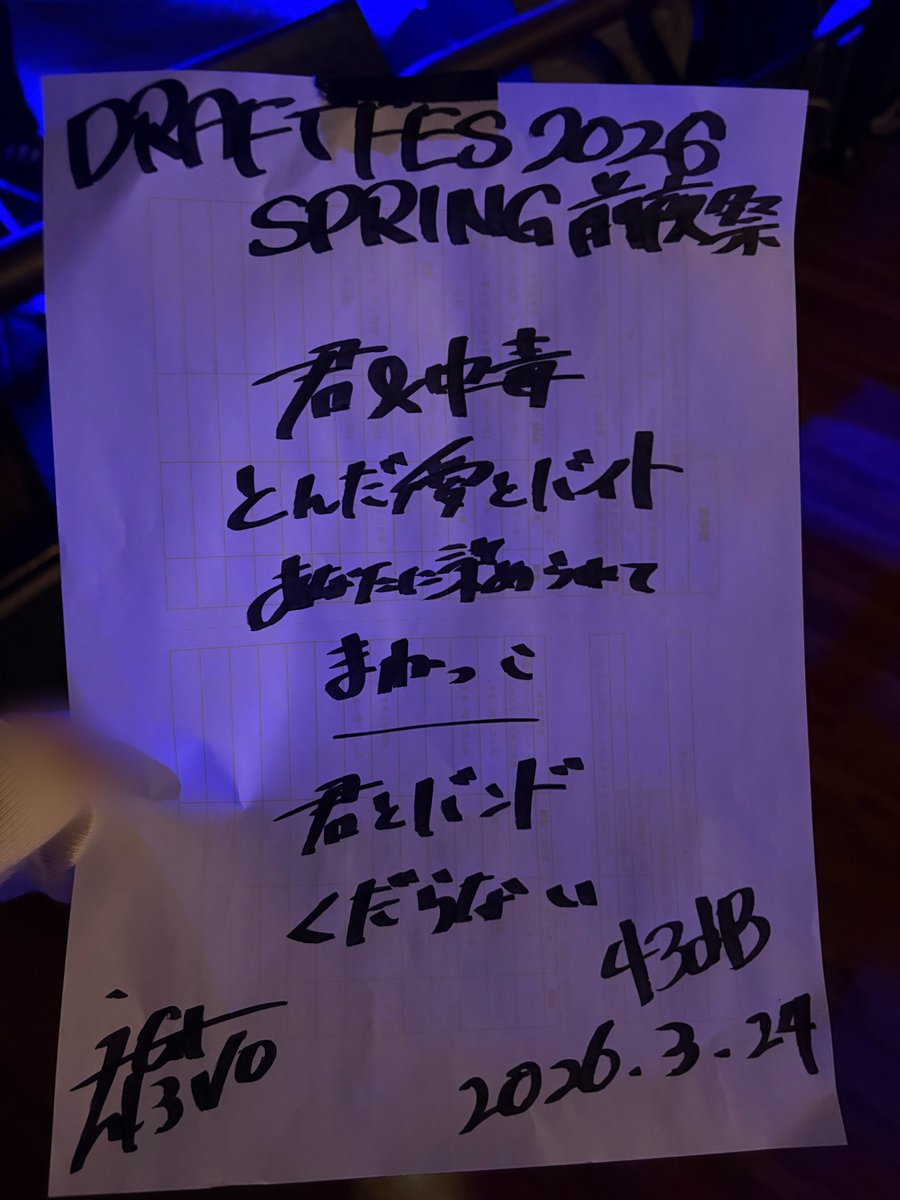 DRAFT FES 2026
SPRING 前夜祭
君&中毒
とんだ愛とバイト
あなたに染められて
まねっこ
君とバンド
くだらない
43dB
2026.3.24